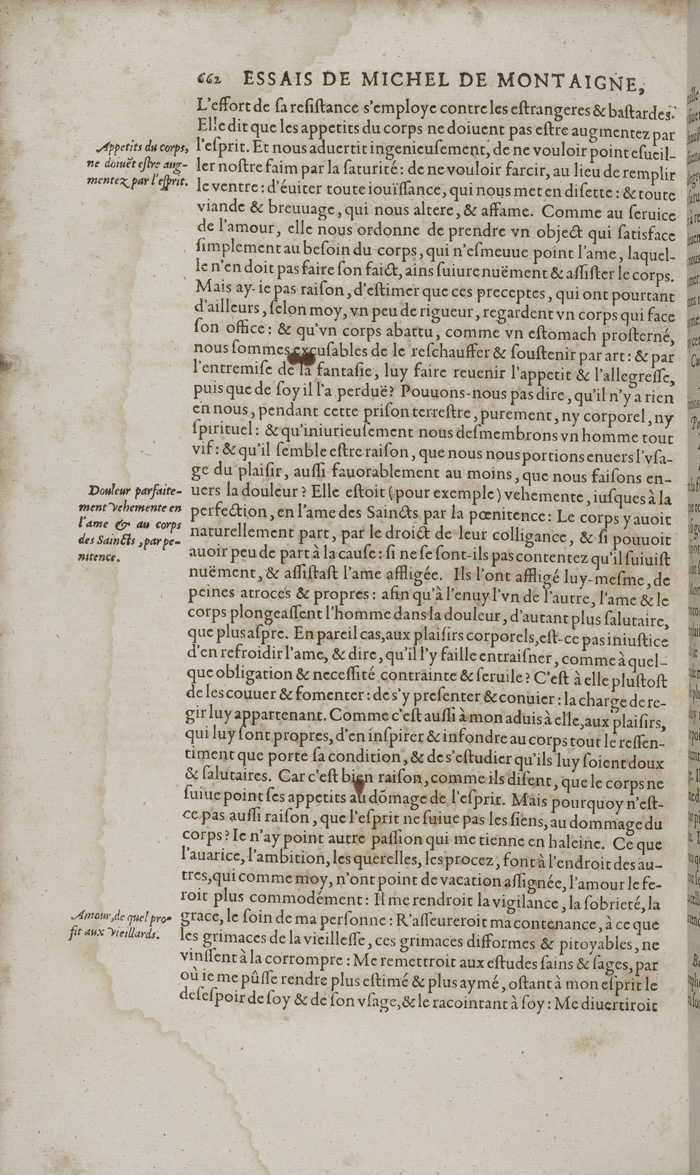 662 ESSAIS DE MICHEL DE MONTAIGNE,
L'effort de ſa reſiſtance s'employe contre les eſtrangeres & baſtardes.
Elle dit que les appetits du corps ne doiuent pas eſtre augmentez par
Appetits du corps,
ne doiuẽt eſtre aug-
mentez par l'eſprit.
l'eſprit. Et nous aduertit ingenieuſement, de ne vouloir point eſueil-
ler noſtre faim par la ſaturité: de ne vouloir farcir, au lieu de remplir
le ventre: d'éuiter toute iouïſſance, qui nous met en diſette: & toute
viande & breuuage, qui nous altere, & affame. Comme au ſeruice
de l'amour, elle nous ordonne de prendre vn object qui ſatisface
ſimplement au beſoin du corps, qui n'eſmeuue point l'ame, laquel-
le n'en doit pas faire ſon faict, ains ſuiure nuëment & aſſiſter le corps.
Mais ay-ie pas raiſon, d'eſtimer que ces preceptes, qui ont pourtant
d'ailleurs, ſelon moy, vn peu de rigueur, regardent vn corps qui face
ſon office: & qu'vn corps abattu, comme vn eſtomach proſterné,
nous ſommes excuſables de le reſchauffer & ſouſtenir par art: & par
l'entremiſe de la fantaſie, luy faire reuenir l'appetit & l'allegreſſe,
puis que de ſoy il l'a perduë? Pouuons-nous pas dire, qu'il n'y a rien
en nous, pendant cette priſon terreſtre, purement, ny corporel, ny
ſpirituel: & qu'iniurieuſement nous deſmembrons vn homme tout
vif: & qu'il ſemble eſtre raiſon, que nous nous portions enuers l'vſa-
ge du plaiſir, auſſi fauorablement au moins, que nous faiſons en-
Douleur parfaite-
ment vehemente en
l'ame & au corps
des Saincts, par pe-
nitence.
uers la douleur? Elle eſtoit (pour exemple) vehemente, iuſques à la
perfection, en l'ame des Saincts par la pœnitence: Le corps y auoit
naturellement part, par le droict de leur colligance, & ſi pouuoit
auoir peu de part à la cauſe: ſi ne ſe ſont-ils pas contentez qu'il ſuiuiſt
nuëment, & aſſiſtaſt l'ame affligée. Ils l'ont affligé luy-meſme, de
peines atroces & propres: afin qu'à l'enuy l'vn de l'autre, l'ame & le
corps plongeaſſent l'homme dans la douleur, d'autant plus ſalutaire,
que plus aſpre. En pareil cas, aux plaiſirs corporels, eſt-ce pas iniuſtice
d'en refroidir l'ame, & dire, qu'il l'y faille entraiſner, comme à quel-
que obligation & neceſſité contrainte & ſeruile? C'eſt à elle pluſtoſt
de les couuer & fomenter: de s'y preſenter & conuier: la charge de re-
gir luy appartenant. Comme c'eſt auſſi à mon aduis à elle, aux plaiſirs,
qui luy ſont propres, d'en inſpirer & infondre au corps tout le reſſen-
timent que porte ſa condition, & de s'eſtudier qu'ils luy ſoient doux
& ſalutaires. Car c'eſt bien raiſon, comme ils diſent, que le corps ne
ſuiue point ſes appetits au dõmage de l'eſprit. Mais pourquoy n'eſt-
ce pas auſſi raiſon, que l'eſprit ne ſuiue pas les ſiens, au dommage du
corps? Ie n'ay point autre paſſion qui me tienne en haleine. Ce que
l'auarice, l'ambition, les querelles, les procez, font à l'endroit des au-
tres, qui comme moy, n'ont point de vacation aſſignée, l'amour le fe-
roit plus commodément: Il me rendroit la vigilance, la ſobrieté, la
Amour, de quel pro-
fit aux vieillards.
grace, le ſoin de ma perſonne: R'aſſeureroit ma contenance, à ce que
les grimaces de la vieilleſſe, ces grimaces difformes & pitoyables, ne
vinſſent à la corrompre: Me remettroit aux eſtudes ſains & ſages, par
où ie me pûſſe rendre plus eſtimé & plus aymé, oſtant à mon eſprit le
deſeſpoir de ſoy & de ſon vſage, & le racointant à ſoy: Me diuertiroit